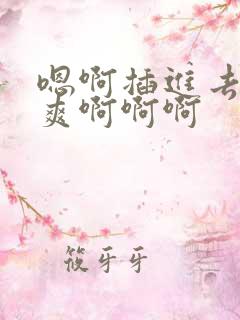 嗯啊插进去
爽啊啊啊
筱牙牙